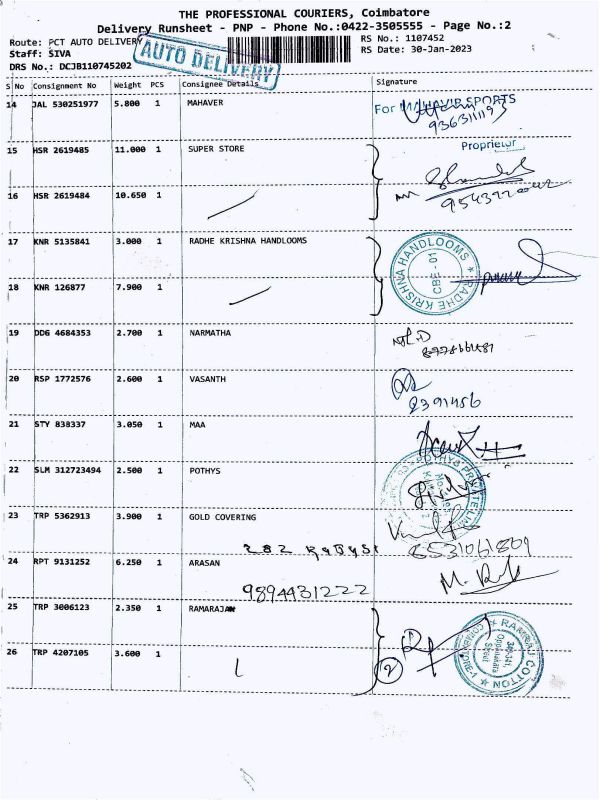 THE PROFESSIONAL COURIERS, Coimbatore
Delivery Runsheet - PNP - Phone No.:0422-3505555 - Page No.:2
Route: PCT AUTO DELIVERY
RS No.: 1107452
Staff: SIVA
RS Date: 30-Jan-2023
DRS No.: DCJB110745202
AUTO DELIVERY
S No Consignment No Weight PCS Consignee Details Signature
14 JAL 530251977 5.800 1 MAHAVER
For MAHAVIR SPORTS
9363111193
Proprietor
15 HSR 2619485 11.000 1 SUPER STORE
16 HSR 2619484 10.650 1
17 KNR 5135841 3.000 1 RADHE KRISHNA HANDLOOMS
RADHE KRISHNA HANDLOOMS
CBE-01
18 KNR 126877 7.900 1
19 DDG 4684353 2.700 1 NARMATHA
20 RSP 1772576 2.600 1 VASANTH
21 STY 838337 3.050 1 MAA
22 SLM 312723494 2.500 1 POTHYS
23 TRP 5362913 3.900 1 GOLD COVERING
8531061809
24 RPT 9131252 6.250 1 ARASAN
9894431222
25 TRP 3006123 2.350 1 RAMARAJ
26 TRP 4207105 3.600 1
2
RAMRAJ COTTON
COIMBATORE-1
Oppanakara
Street